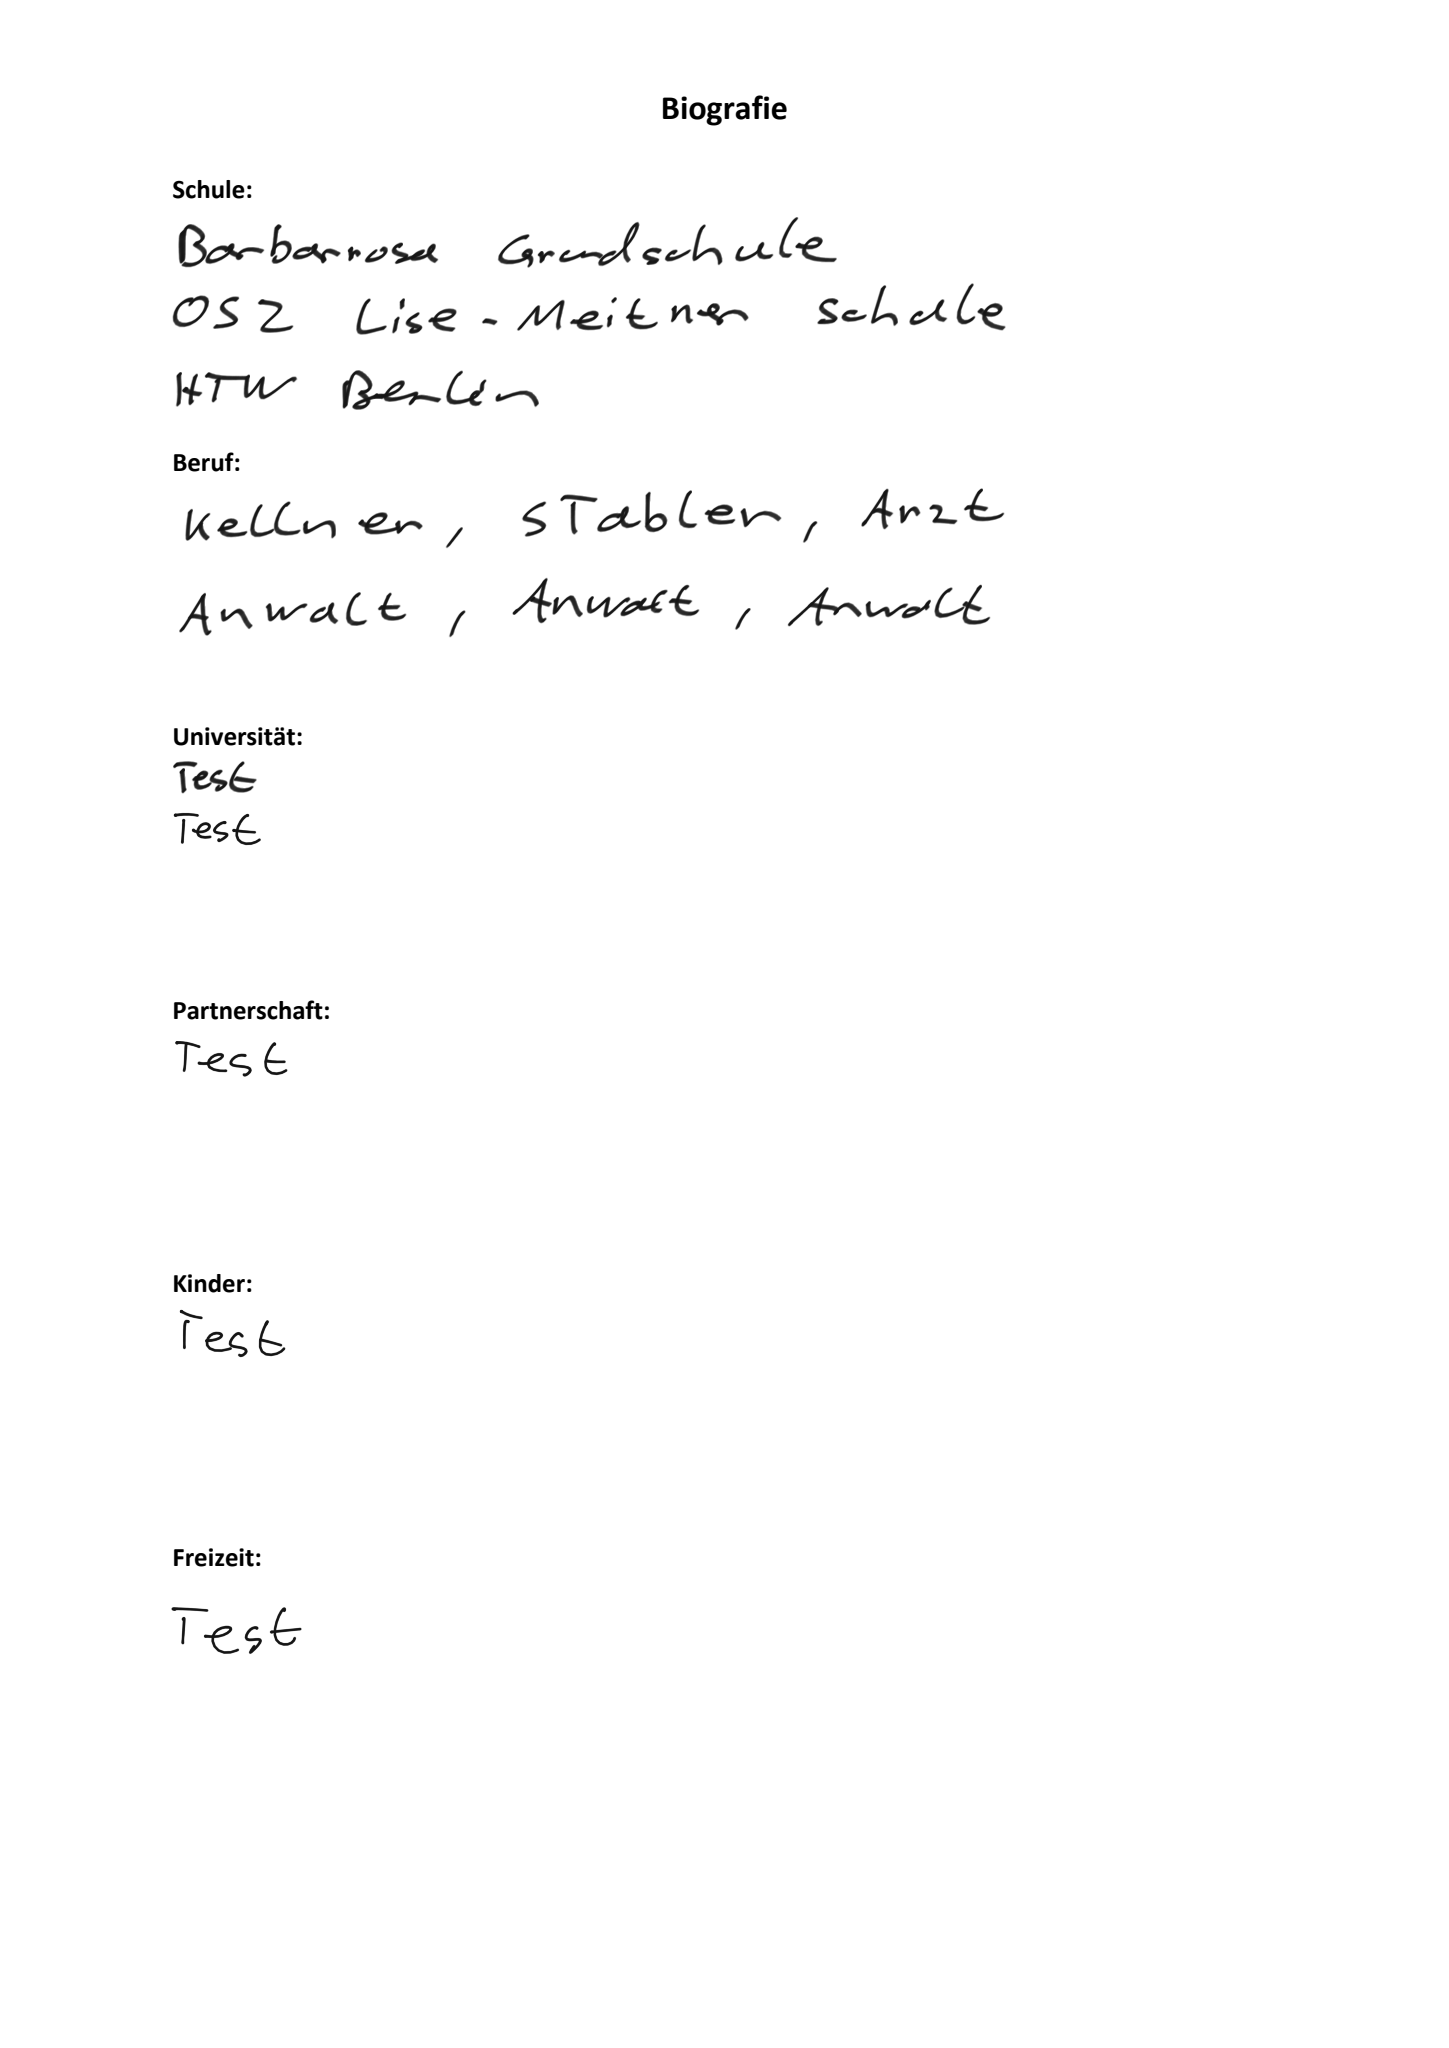 Biografie
Schule:
Barbarrosa Grundschule
OSZ Lise-Meitner Schule
HTW Berlin
Beruf:
Kellner, STabler, Arzt
Anwalt, Anwalt, Anwalt
Universität:
Test
Test
Partnerschaft:
Test
Kinder:
Test
Freizeit:
Test